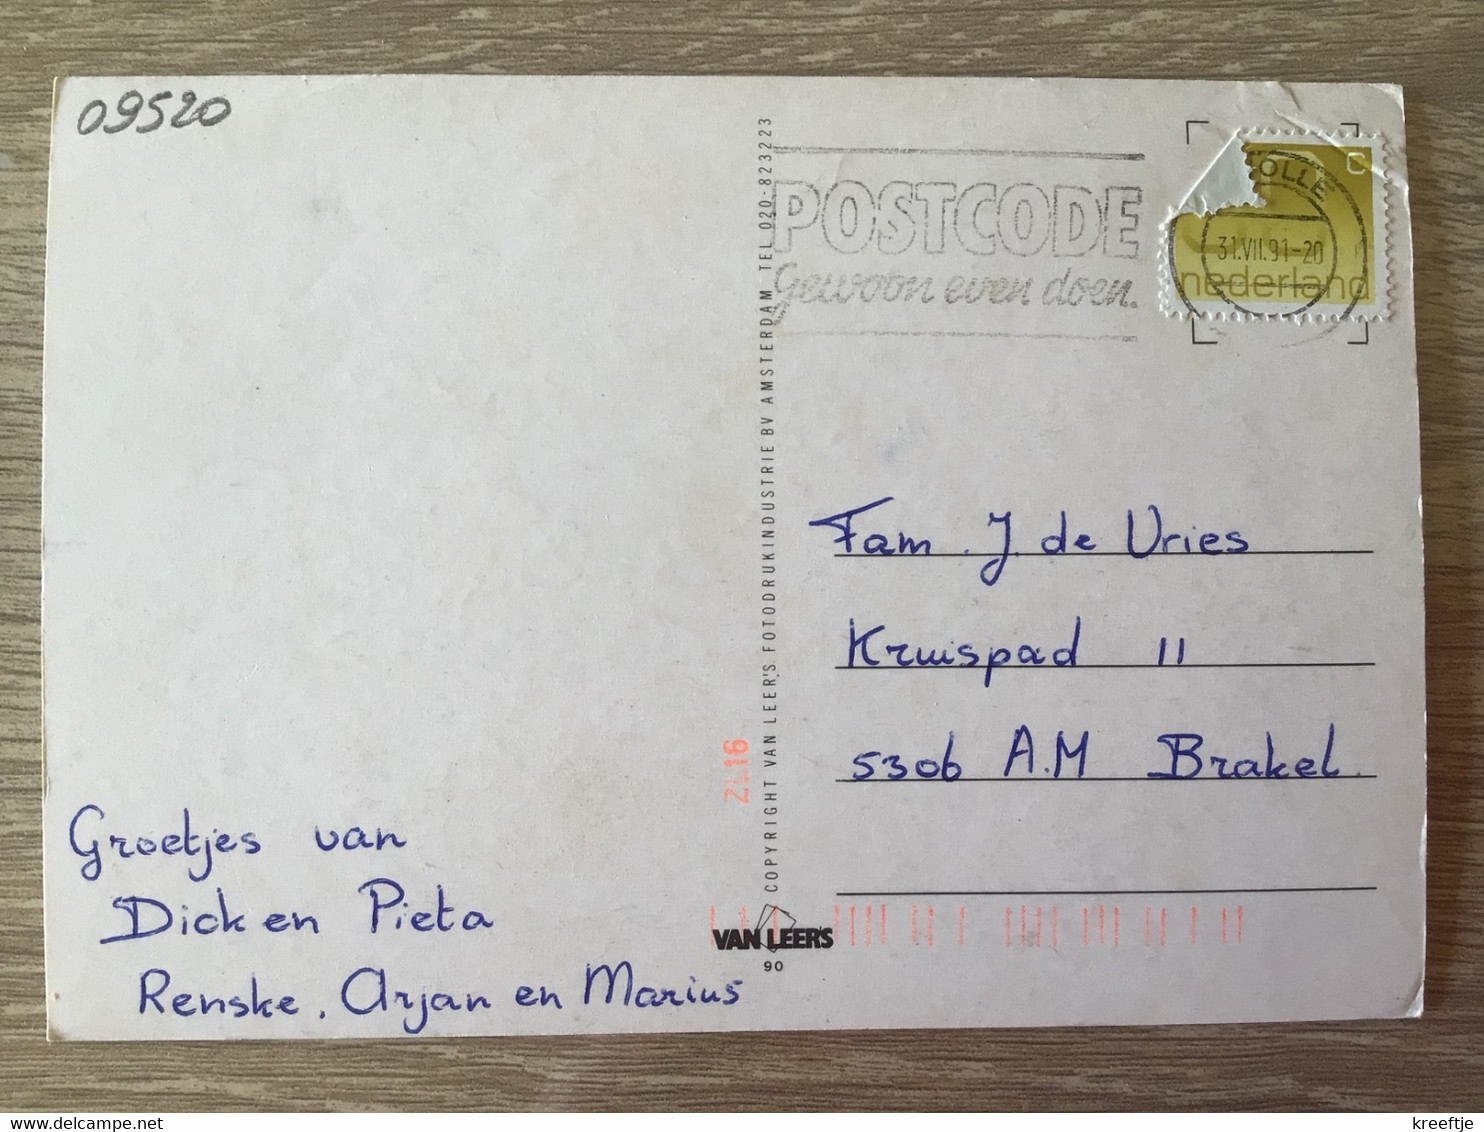 09520
POSTCODE
Gewoon even doen.
OLLE
31.VII.91-20
C
nederland
COPYRIGHT VAN LEER'S FOTODRUKINDUSTRIE BV AMSTERDAM TEL 020-823223
Fam. J. de Vries
Kruispad 11
5306 A.M Brakel
Groetjes van
Dick en Pieta
Renske, Arjan en Marius
VAN LEER'S
90
kreeftje